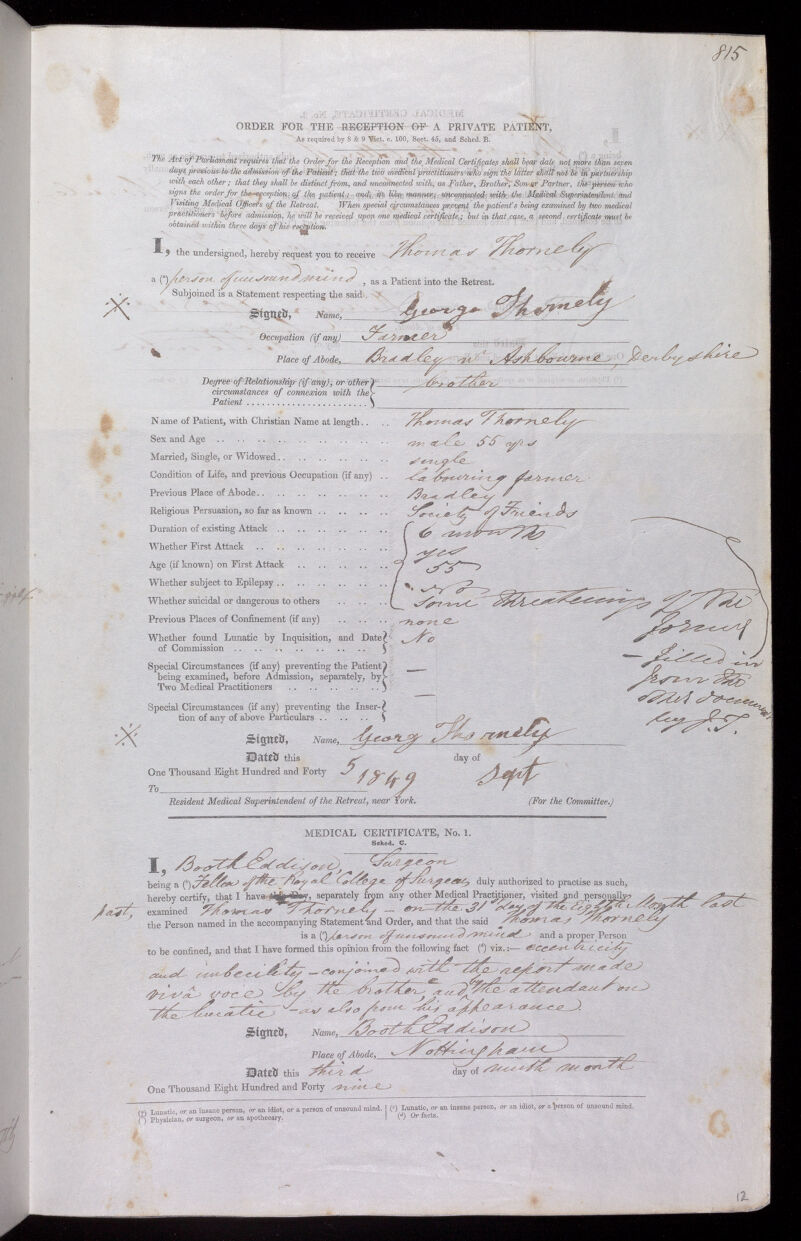 815
ORDER FOR THE RECEPTION OF A PRIVATE PATIENT,
As required by 8 & 9 Vict. c. 100, Sect. 45, and Sched. B.
The Act of Parliament requires that the Order for the Reception and the Medical Certificates shall bear date not more than seven
days previous to the admission of the Patient; that the two medical practitioners who sign the latter shall not be in partnership
with each other; that they shall be distinct from, and unconnected with, as Father, Brother, Son or Partner, the person who
signs the order for the reception of the patient; and, in like manner, unconnected with the Medical Superintendent and
Visiting Medical Officers of the Retreat. When special circumstances prevent the patient's being examined by two medical
practitioners before admission, he will be received upon one medical certificate; but in that case, a second certificate must be
obtained within three days of his reception.
I, the undersigned, hereby request you to receive Thomas Thornely
a (a) person of unsound mind, as a Patient into the Retreat.
Subjoined is a Statement respecting the said
Signed, Name, George Thornely
Occupation (if any) Farmer
Place of Abode, Bradley nr Ashbourne, Derbyshire
Degree of Relationship (if any), or other
circumstances of connexion with the
Patient brother
Name of Patient, with Christian Name at length Thomas Thornely
Sex and Age male 55 yrs
Married, Single, or Widowed single
Condition of Life, and previous Occupation (if any) labouring farmer
Previous Place of Abode Bradley
Religious Persuasion, so far as known Society of Friends
Duration of existing Attack 6 months
Whether First Attack yes
Age (if known) on First Attack 55
Whether subject to Epilepsy No
Whether suicidal or dangerous to others Some threatenings of the former
Previous Places of Confinement (if any) none
Whether found Lunatic by Inquisition, and Date
of Commission No
– filled in
from the
other document
by J.T.
Special Circumstances (if any) preventing the Patient
being examined, before Admission, separately, by
Two Medical Practitioners —
Special Circumstances (if any) preventing the Inser-
tion of any of above Particulars —
Signed, Name, Georg Thornely
Dated this 5 day of Sept
One Thousand Eight Hundred and Forty 1849
To
Resident Medical Superintendent of the Retreat, near York. (For the Committee.)
MEDICAL CERTIFICATE, No. 1.
Sched. C.
I, Booth Eddison, Surgeon
being a (b) Fellow of the Royal College of Surgeons, duly authorized to practise as such,
hereby certify, that I have this Day, separately from any other Medical Practitioner, visited and personally
last, examined Thomas Thornely – on the 31st day of the Eighth Month last
the Person named in the accompanying Statement and Order, and that the said Thomas Thornely
is a (c) person of unsound mind and a proper Person
to be confined, and that I have formed this opinion from the following fact (d) viz.:— eccentricity
and imbecility – conjoined with the report made
vivâ voce by the brother, and the attendant on
the lunatic – as also from his appearance.
Signed, Name, Booth Eddison
Place of Abode, Nottingham
Dated this third day of ninth month
One Thousand Eight Hundred and Forty nine
(a) Lunatic, or an insane person, or an idiot, or a person of unsound mind.
(b) Physician, or surgeon, or an apothecary.
(c) Lunatic, or an insane person, or an idiot, or a person of unsound mind.
(d) Or facts.
12